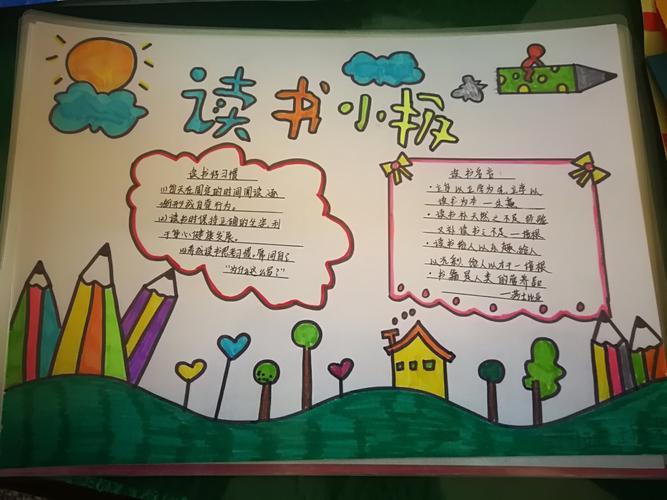 读书小报
读书好习惯
(1)每天在固定的时间阅读,逐
渐形成自觉行为。
(2)读书时保持正确的坐姿,利
于身心健康发展。
(3)养成读书思考习惯,常问自己
"为什么这么写?"
读书名言
·立身以立学为先,立学以
读书为本
·读书补天然之不足,经验
又补读书之不足—培根
·读书给人以乐趣,给人
以光彩,给人以才干—培根
·书籍是人类的营养品
—莎士比亚